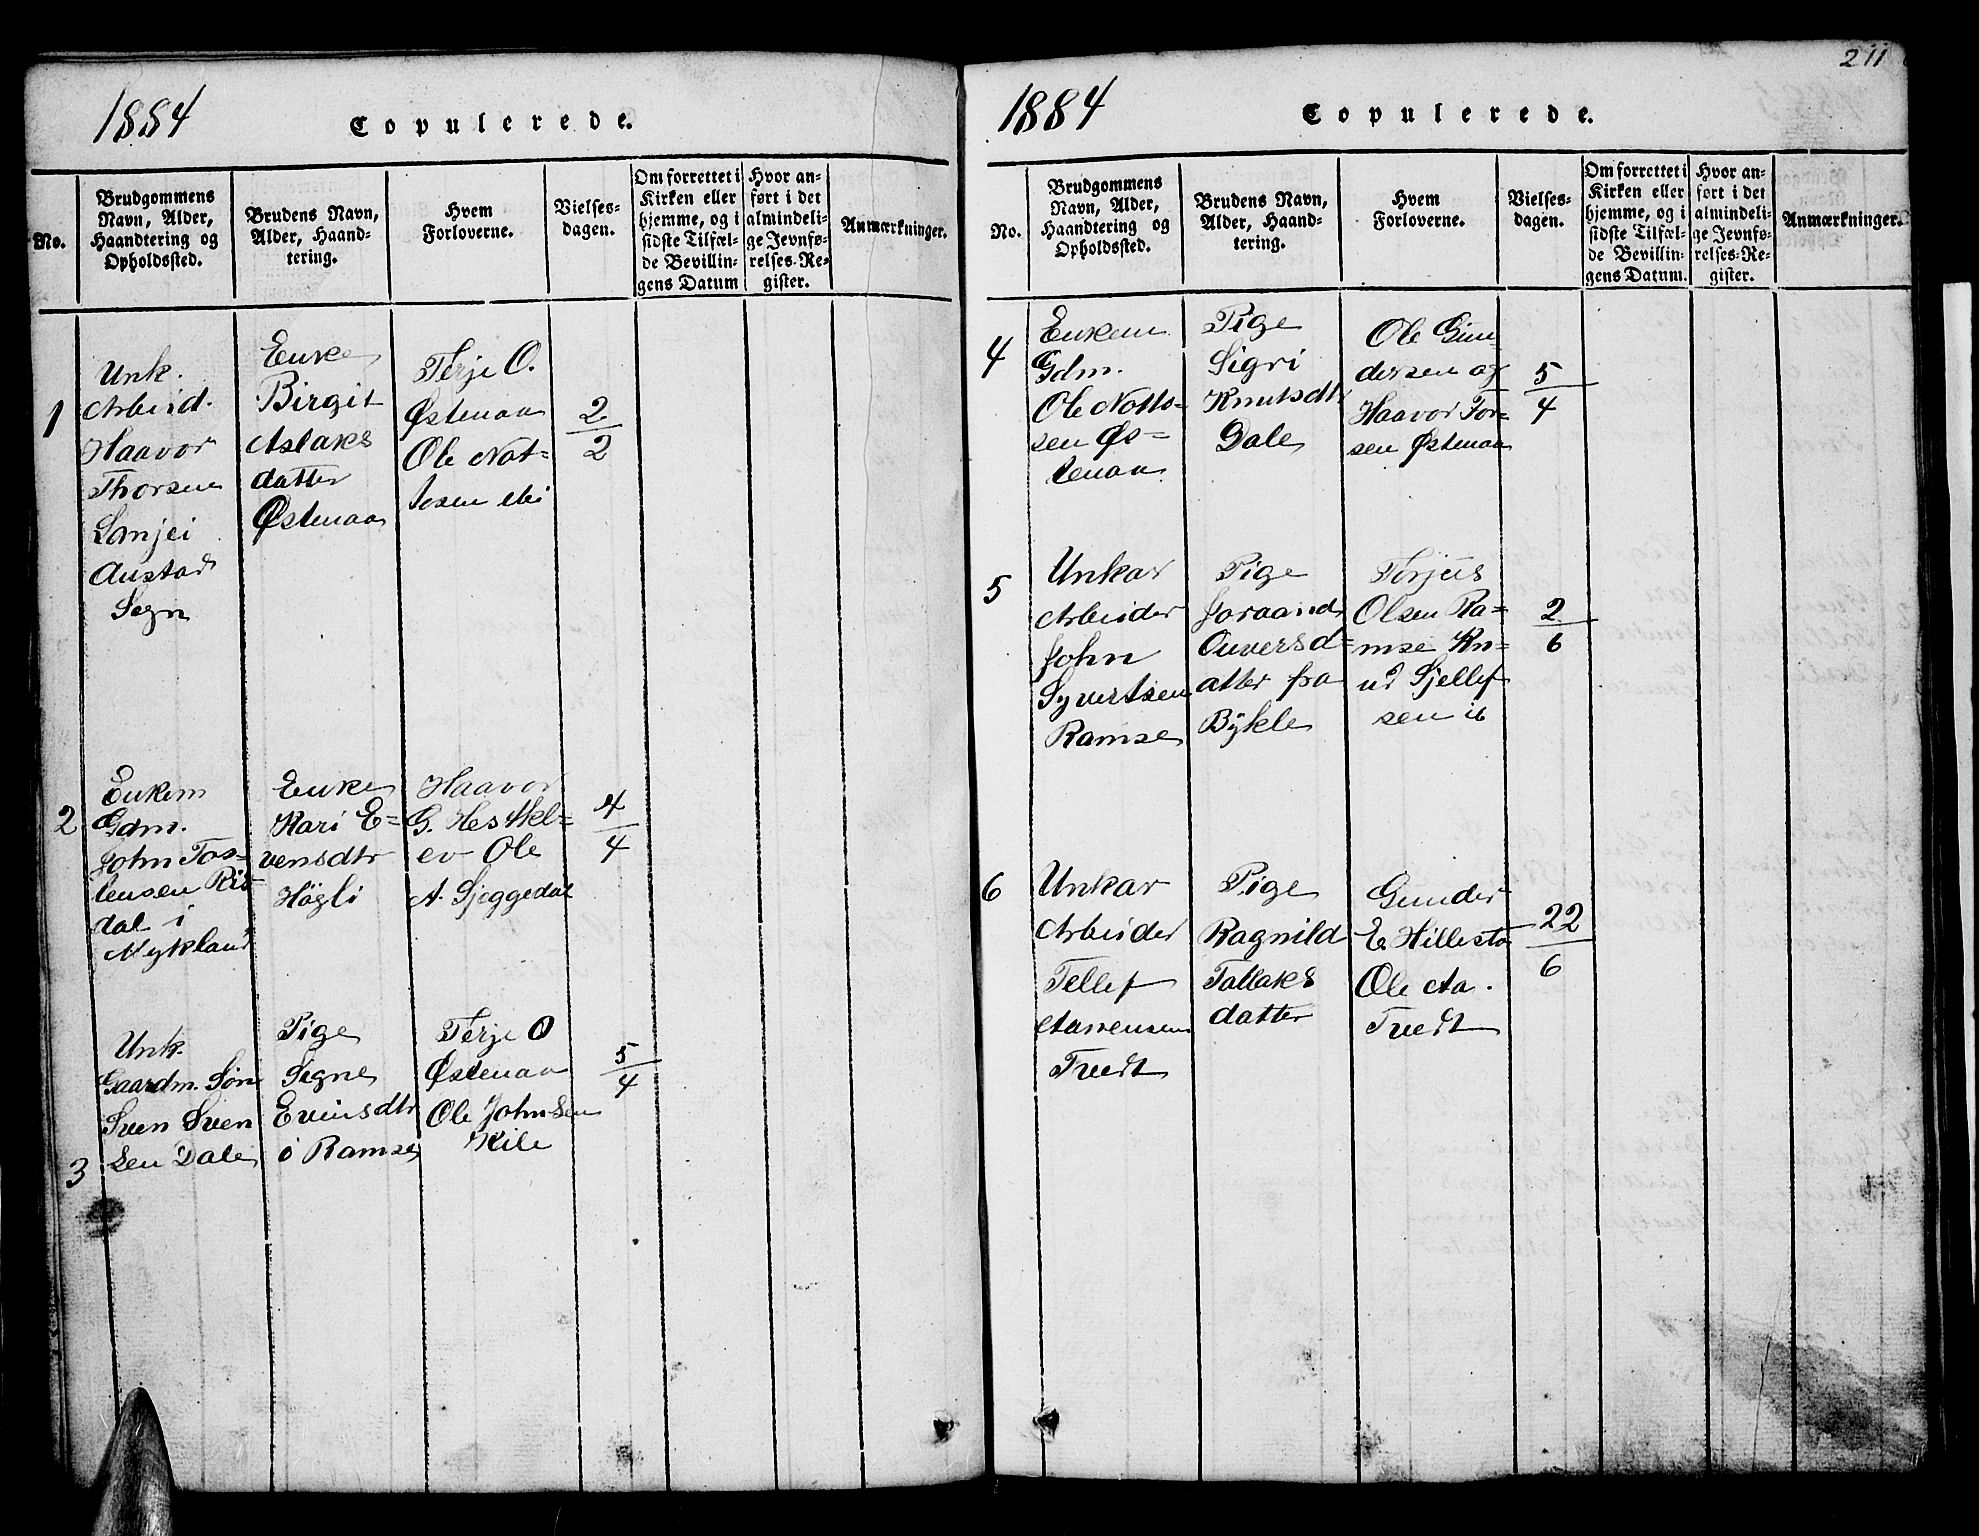 1884
Copulerede.
No.
Brudgommens
Navn, Alder,
Haandtering og
Opholdssted.
Brudens Navn,
Alder, Haand-
tering.
Hvem
Forloverne.
Vielses-
dagen.
Om forrettet i
Kirken eller
hjemme, og i
sidste Tilfæl-
de Bevillin-
gens Datum
Hvor an-
ført i det
almindeli-
ge Jevnfø-
relses-Re-
gister.
Anmærkninger.
1
Unk.
Arbeid.
Haavor
Thorsen
Lanjei
Austad
Sogn
Enke
Birgit
Aslaks
datter
Østenaa
Terje O.
Østenaa
Ole Not-
tosen
2/2
2
Enkem
Gdm.
John Tos-
lensen Ris
dal i
Mykland
Enke
Kari E-
vensdtr
Högli
Haavor
G. Hestkel-
ev Ole
A. Sjeggedal
4/4
3
Unk.
Gaardm. Søn
Sven Sven
sen Dale
Pige
Signe
Evensdtr
o Ramse
Terje O
Østenaa
Ole Johnsen
Kile
5/4
211
1884
Copulerede.
No.
Brudgommens
Navn, Alder,
Haandtering og
Opholdssted.
Brudens Navn,
Alder, Haand-
tering.
Hvem
Forloverne.
Vielses-
dagen.
Om forrettet i
Kirken eller
hjemme, og i
sidste Tilfæl-
de Bevillin-
gens Datum.
Hvor an-
ført i det
almindeli-
ge Jevnfø-
relses-Re-
gister.
Anmærkninger.
4
Enkem
Gdm.
Ole Notto-
sen Øs-
tenaa
Pige
Sigri
Knutsdtr
Dale
Ole Gun-
dersen og
Haavor Tor-
sen Østenaa
5/4
5
Unkar
Arbeider
John
Syvertsen
Ramse
Pige
Joraand
Ouversd-
atter fra
Bykle
Torjus
Olsen Ra-
mse Kn-
ud Sjellef
sen ib
2/6
6
Unkar
Arbeider
Tellef
Aanensen
Tvedt
Pige
Ragnild
Tallaks
datter
Gunder
E Hillestø
Ole Aa.
Tvedt
22/6